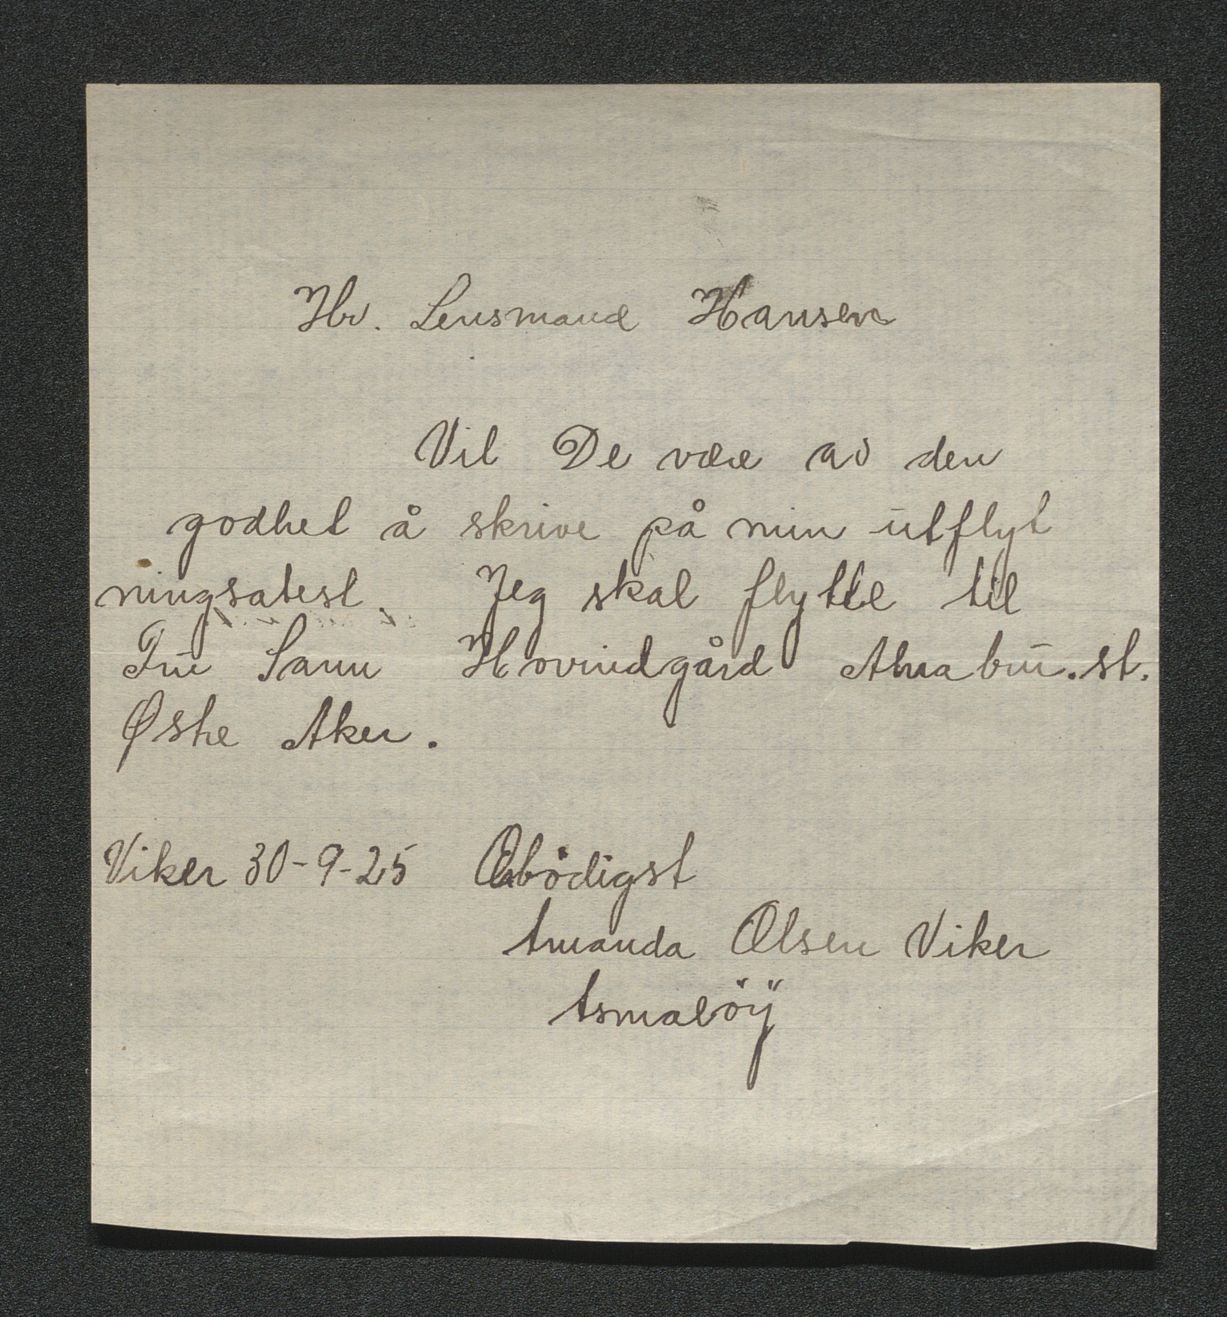 Hr. Lensmand Hansen
Vil De være av den
godhet å skrive på min utflyt
ningsatest. Jeg skal flytte til
Frü Sann Hovindgård Alnabrü.st.
Østre Aker.
Viker 30-9-25 Ærbödigst
Amanda Olsen Viker
Asmaløÿ